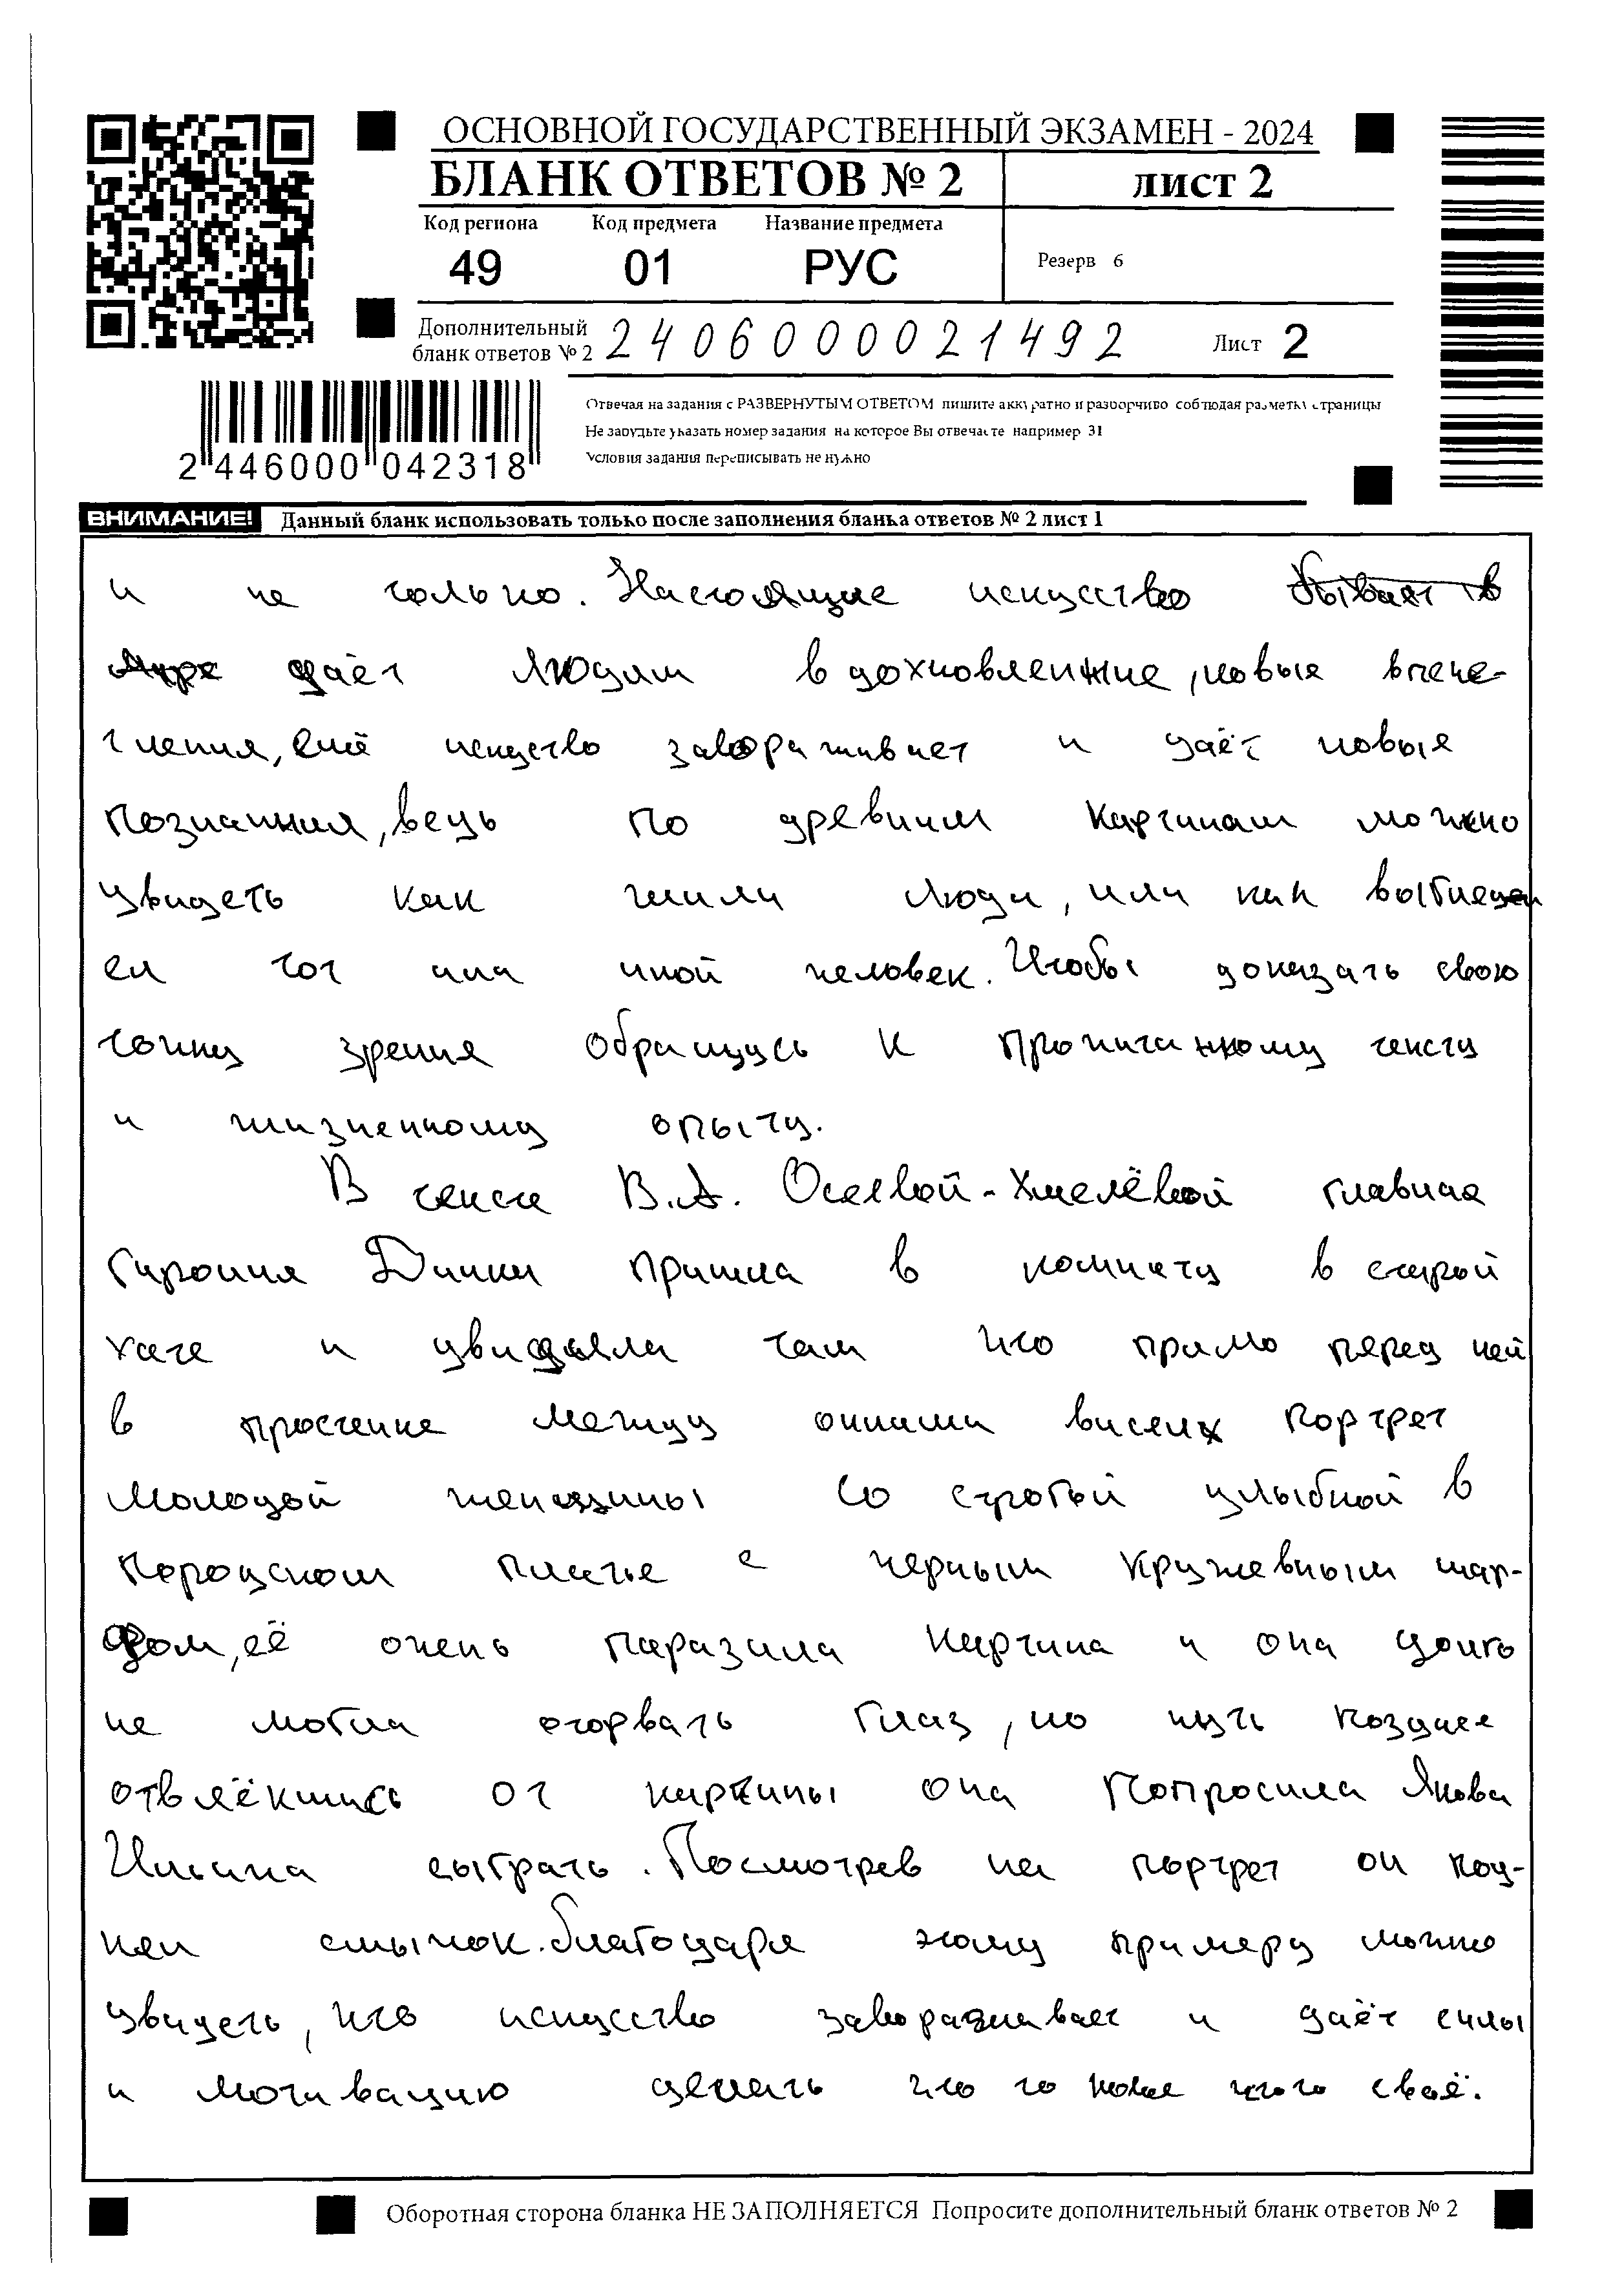 ОСНОВНОЙ ГОСУДАРСТВЕННЫЙ ЭКЗАМЕН - 2024
БЛАНК ОТВЕТОВ № 2 лист 2
Код региона Код предмета Название предмета
49 01 РУС
Резерв 6
Дополнительный
бланк ответов № 2 2406000021492 Лист 2
Отвечая на задания с РАЗВЕРНУТЫМ ОТВЕТОМ пишите аккуратно и разборчиво соблюдая разметку страницы
Не забудьте указать номер задания на которое Вы отвечаете например 31
Условия задания переписывать не нужно
2 446000 042318
ВНИМАНИЕ! Данный бланк использовать только после заполнения бланка ответов № 2 лист 1
и не только. Настоящие искусство бывает в
мире даёт людям вдохновление, новые впече-
тления, ещё искуство завораживает и даёт новые
познания, ведь по древним картинам можно
увидеть как жили люди, или как выгляде
ел тот или иной человек. Чтобы доказать свою
точку зрения обращусь к прочитанному тексту
и жизненному опыту.
В тексте В.А. Осеевой-Хмелёвой главная
гироиня Динки пришла в комнату в старой
хате и увидела там что прямо перед ней
в простенке между окнами висел портрет
молодой женщины со строгой улыбкой в
городском платье с черным кружевным шар-
фом, её очень паразила картина и она долго
не могла оторвать глаз, но чуть позднее
отвлёкшись от картины она попросила Якова
Ильича сыграть. Посмотрев на портрет он под-
нял смычок. благодаря этому примеру можно
увидеть, что искусство завораживает и даёт силы
и мотивацию делать что то новое чего своё.
Оборотная сторона бланка НЕ ЗАПОЛНЯЕТСЯ Попросите дополнительный бланк ответов № 2